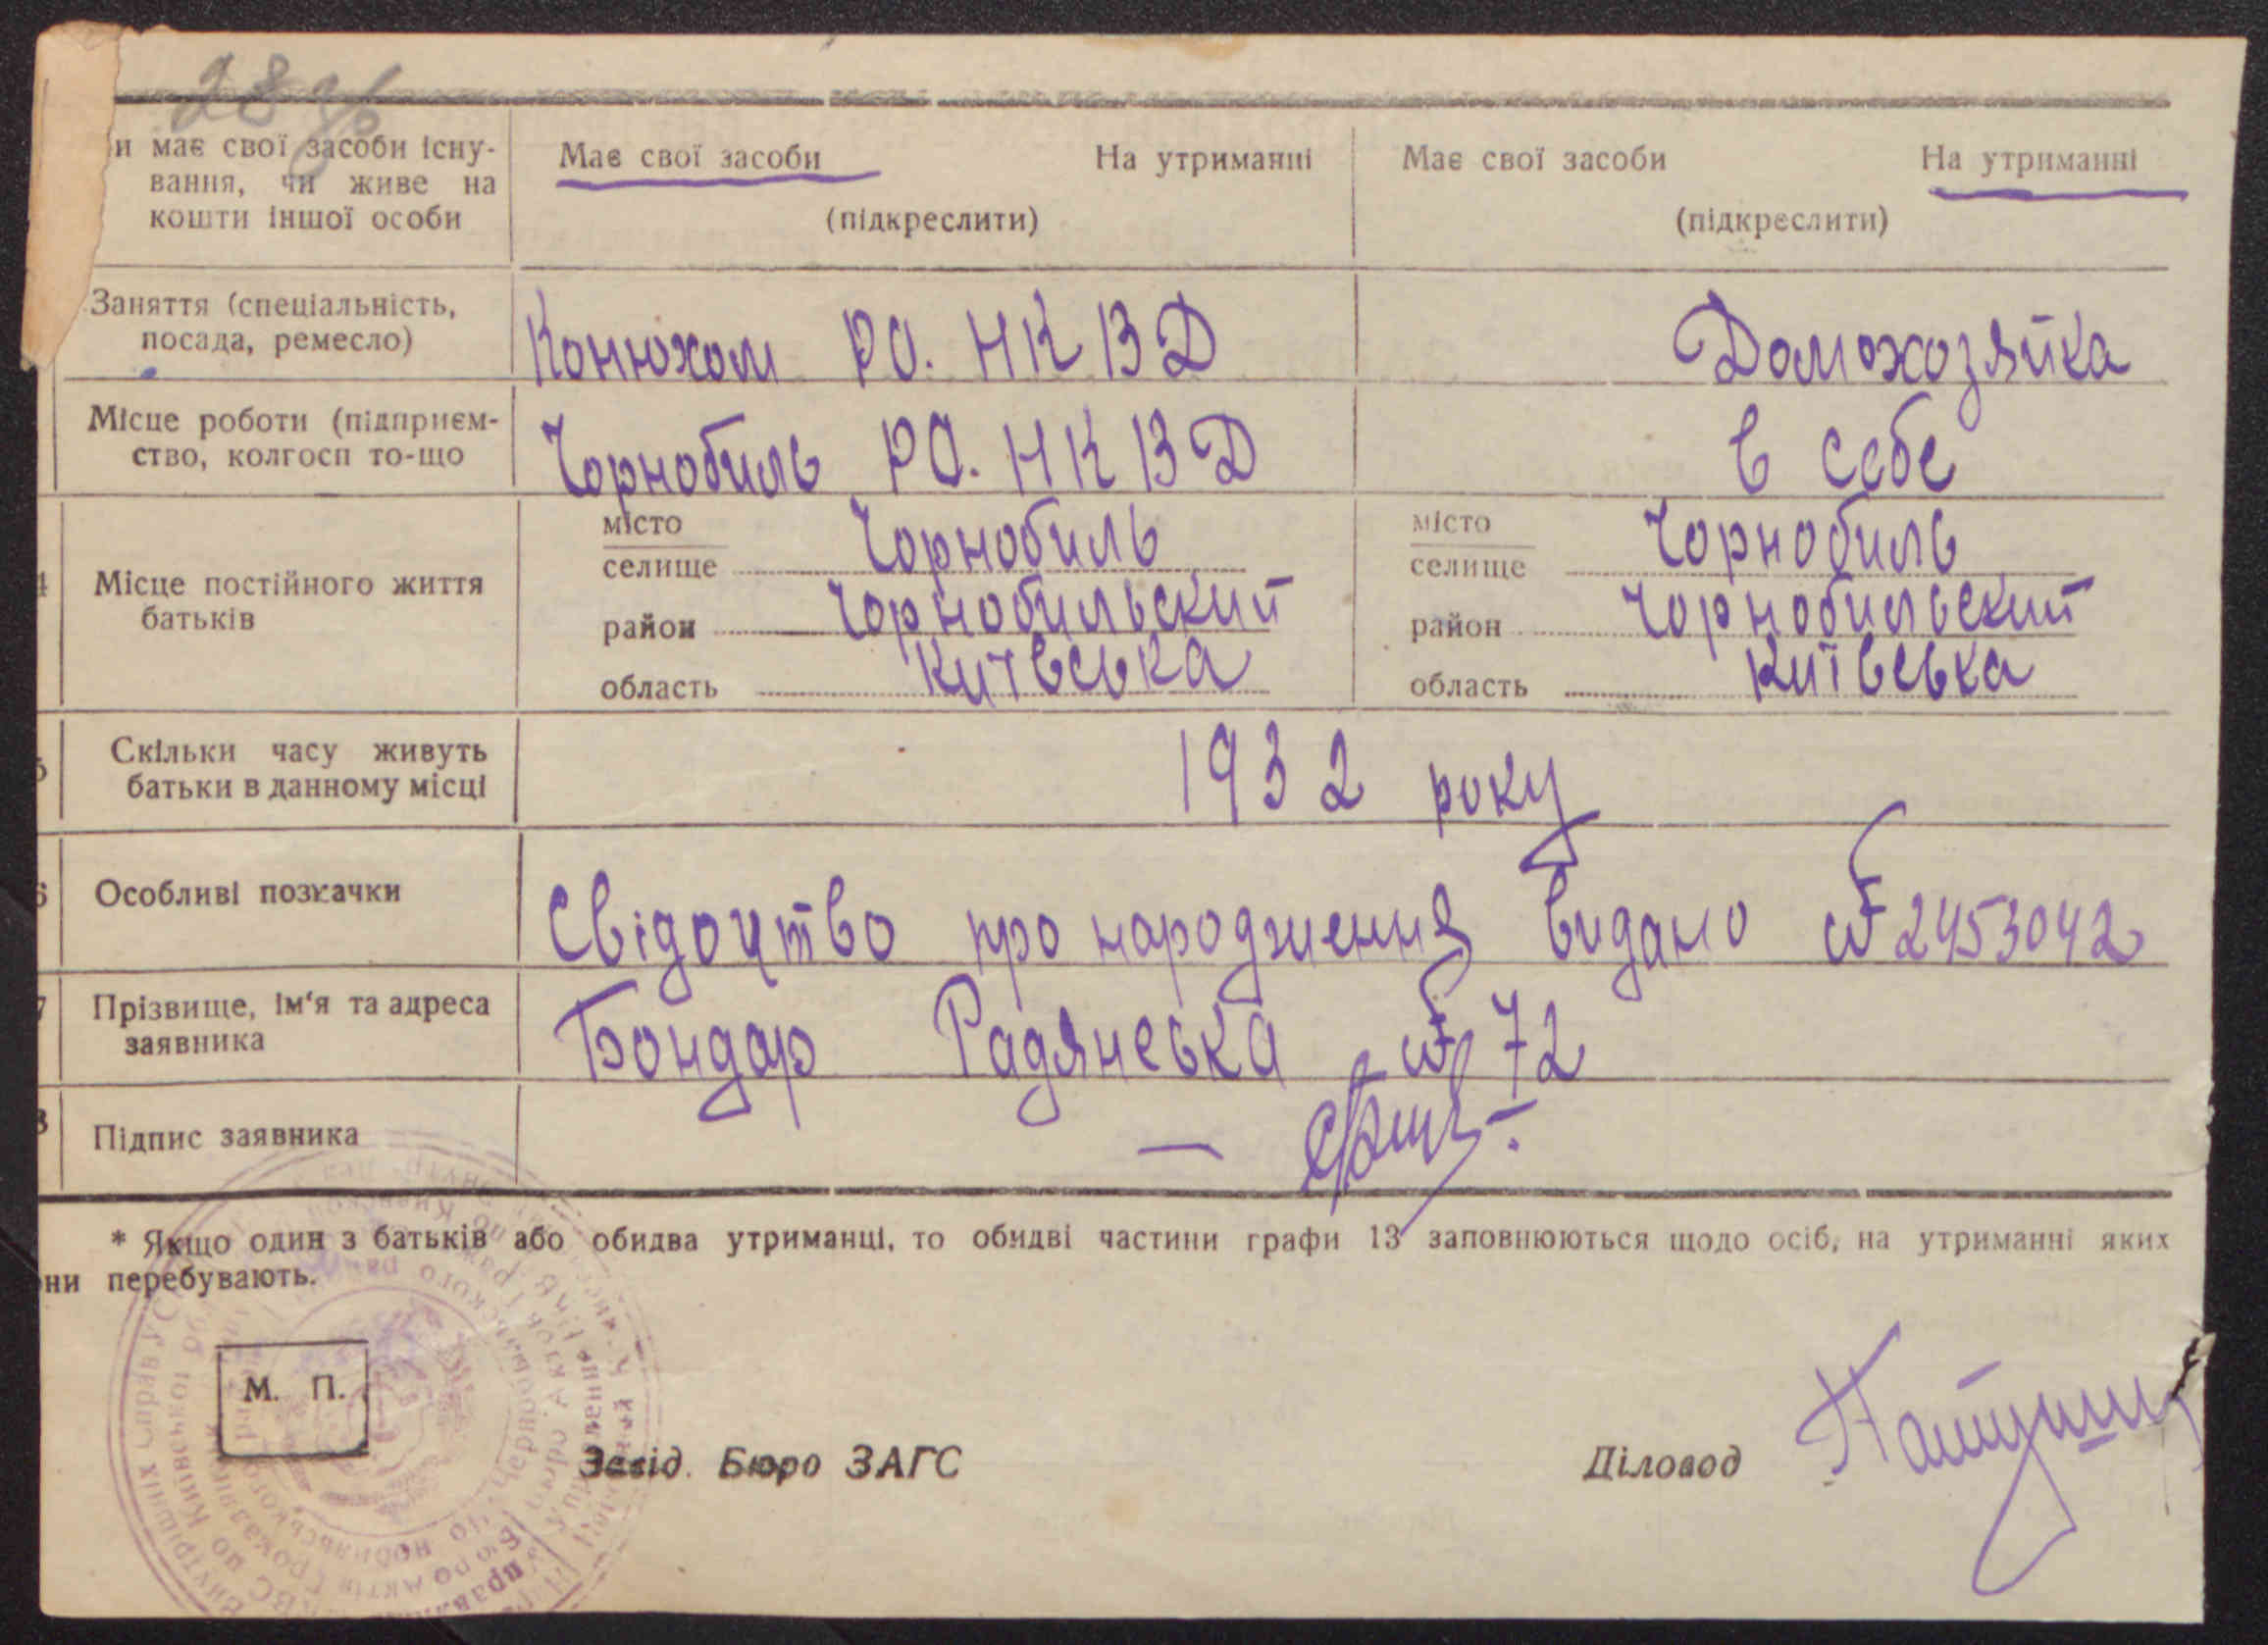 28
и має свої засоби існу- Має свої засоби На утриманні Має свої засоби На утриманні
вання, чи живе на
кошти іншої особи (підкреслити) (підкреслити)
Заняття (спеціальність,
посада, ремесло) Конюхом РО. НКВД Домохозяйка
Місце роботи (підприєм-
ство, колгосп то-що Чорнобиль РО. НКВД в себе
місто Чорнобиль місто Чорнобиль
селище селище
4 Місце постійного життя
батьків
район Чорнобильский район Чорнобильский
область Київська область Київська
5 Скільки часу живуть
батьки в данному місці 1932 року
6 Особливі позначки Свідоцтво про народження видано № 2453042
7 Прізвище, ім'я та адреса
заявника Бондар Радянська № 72
8 Підпис заявника
* Якщо один з батьків або обидва утриманці, то обидві частини графи 13 заповнюються щодо осіб, на утриманні яких
ни перебувають.
М. П.
Завід. Бюро ЗАГС Діловод